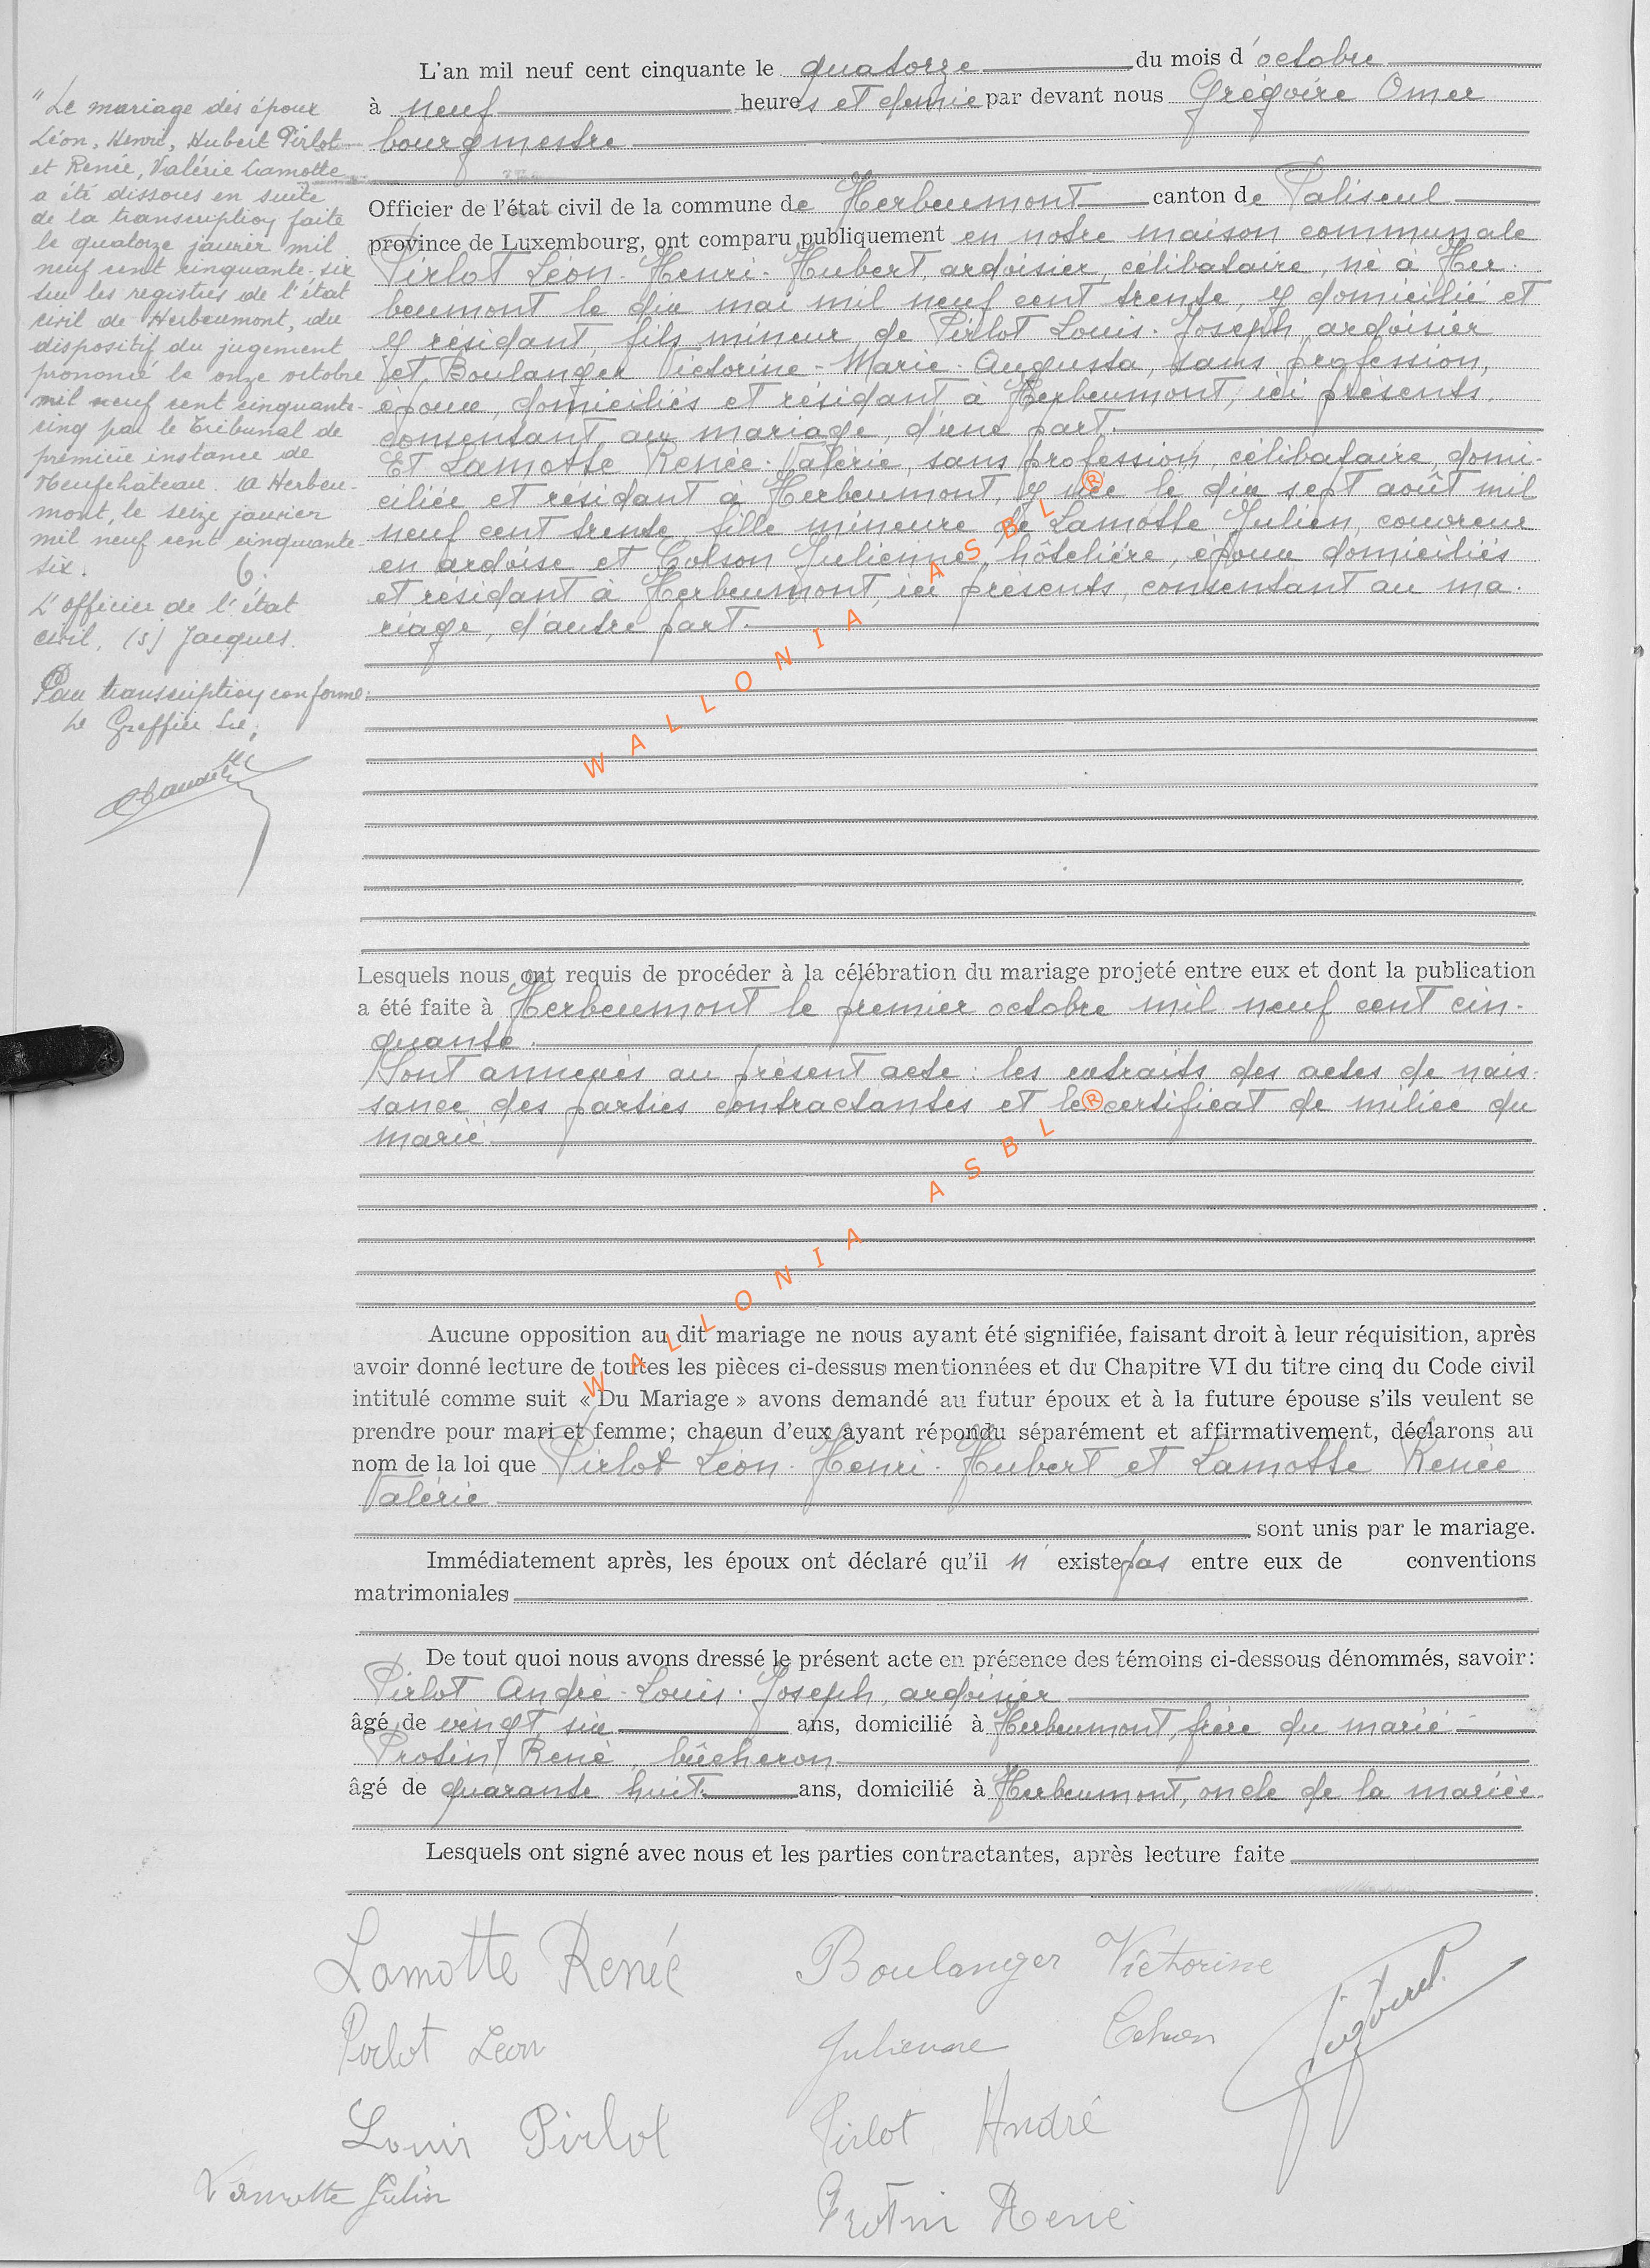 "Le mariage des époux
Léon, Henri, Hubert Pirlot
et Renée, Valérie Lamotte
a été dissous en suite
de la transcription faite
le quatorze janvier mil
neuf cent cinquante-six
sur les registres de l'état
civil de Herbeumont, du
dispositif du jugement
prononcé le onze octobre
mil neuf cent cinquante-
cinq par le Tribunal de
première instance de
Neufchâteau. A Herbeu-
mont, le seize janvier
mil neuf cent cinquante-
six.
L'officier de l'état
civil, (s) Jacques.
Pour transcription conforme:
Le Greffier
L'an mil neuf cent cinquante le quatorze du mois d'octobre
à neuf heures et demie par devant nous Grégoire Omer
bourgmestre
Officier de l'état civil de la commune de Herbeumont canton de Paliseul
province de Luxembourg, ont comparu publiquement en notre maison communale
Pirlot Léon-Henri-Hubert, ardoisier, célibataire, né à Her-
beumont le dix mai mil neuf cent trente, y domicilié et
y résidant, fils mineur de Pirlot Louis-Joseph, ardoisier
et Boulanger Victorine-Marie-Augusta, sans profession,
époux, domiciliés et résidant à Herbeumont, ici présents,
consentant au mariage, d'une part.
Et Lamotte Renée-Valérie, sans profession, célibataire, domi-
ciliée et résidant à Herbeumont, y née le dix sept août mil
neuf cent trente, fille mineure de Lamotte Julien, couvreur
en ardoise et Colson Julienne, hôtelière, époux domiciliés
et résidant à Herbeumont, ici présents, consentant au ma-
riage, d'autre part.
WALLONIA ASBL ®
Lesquels nous ont requis de procéder à la célébration du mariage projeté entre eux et dont la publication
a été faite à Herbeumont le premier octobre mil neuf cent cin-
quante.
Sont annexés au présent acte: les extraits des actes de nais-
sance des parties contractantes et le certificat de milice du
marié
WALLONIA ASBL ®
Aucune opposition au dit mariage ne nous ayant été signifiée, faisant droit à leur réquisition, après
avoir donné lecture de toutes les pièces ci-dessus mentionnées et du Chapitre VI du titre cinq du Code civil
intitulé comme suit «Du Mariage» avons demandé au futur époux et à la future épouse s'ils veulent se
prendre pour mari et femme; chacun d'eux ayant répondu séparément et affirmativement, déclarons au
nom de la loi que Pirlot Léon-Henri-Hubert et Lamotte Renée
Valérie
sont unis par le mariage.
Immédiatement après, les époux ont déclaré qu'il n'existe pas entre eux de conventions
matrimoniales
De tout quoi nous avons dressé le présent acte en présence des témoins ci-dessous dénommés, savoir:
Pirlot André-Louis-Joseph, ardoisier
âgé de vingt six ans, domicilié à Herbeumont, frère du marié
Protin René, bûcheron
âgé de quarante huit ans, domicilié à Herbeumont, oncle de la mariée.
Lesquels ont signé avec nous et les parties contractantes, après lecture faite
Lamotte Renée Boulanger Victorine
Pirlot Léon Julienne Colson
Louis Pirlot Pirlot André
Lamotte Julien
Protin René